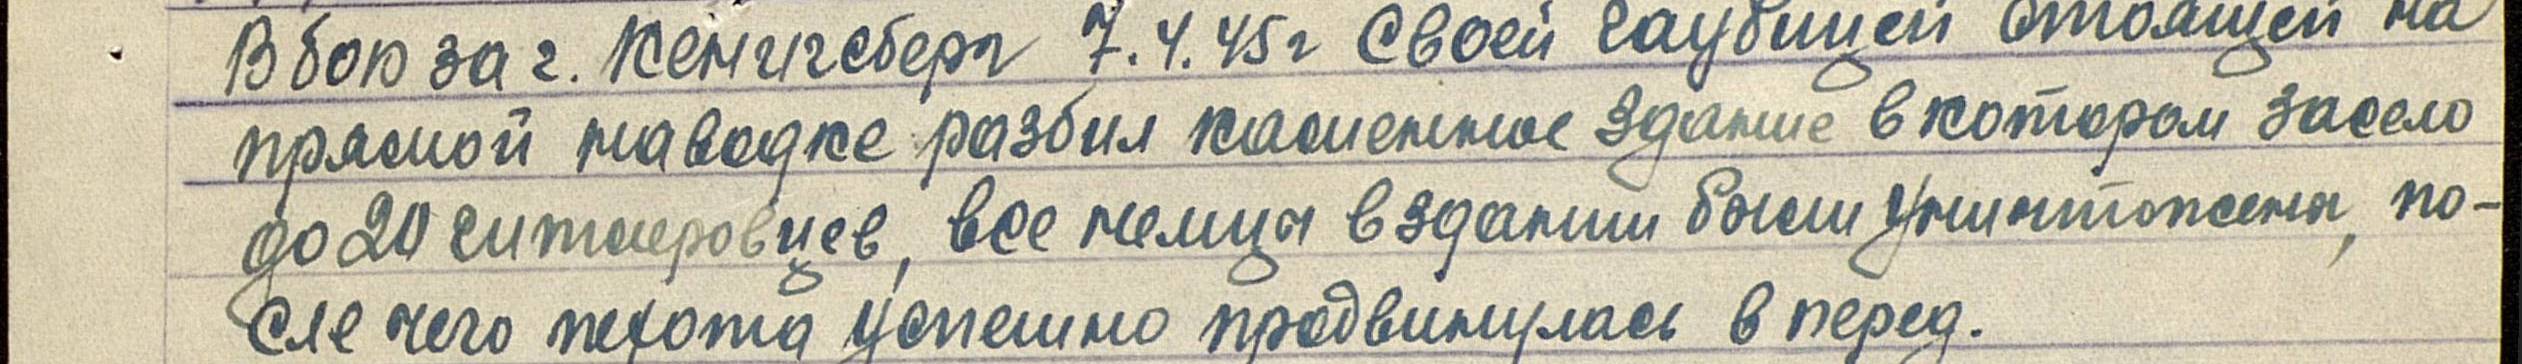 В бою за г. Кенигсберг 7.4.45г своей гаубицей стоящей на
прямой наводке разбил каменное здание в котором засело
до 20 гитлеровцев, все немцы в здании были уничтожены, по-
сле чего пехота успешно продвинулась в перед.